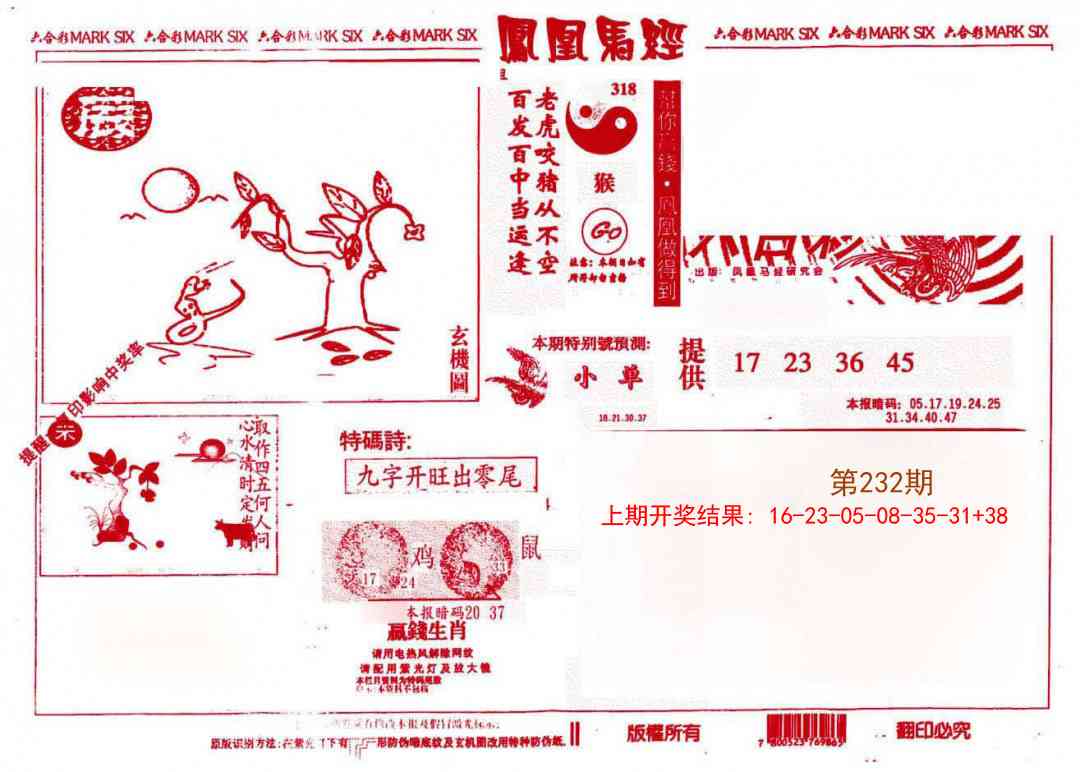 六合彩MARK SIX 六合彩MARK SIX 六合彩MARK SIX 六合彩MARK SIX
鳳凰馬經
六合彩MARK SIX 六合彩MARK SIX 六合彩MARK SIX
318
老虎咬猪从不空
百发百中当运逢
猴
Go
幫你贏錢·鳳凰做得到
出版：凤凰马经研究会
玄機圖
提醒
印影响中奖率
本期特别號預测:
小 单
18.21.30.37
提供
17 23 36 45
本报暗码: 05.17.19.24.25
31.34.40.47
取作四五何人问
心水清时定发财
特碼詩:
九字开旺出零尾
第232期
上期开奖结果: 16-23-05-08-35-31+38
鸡
鼠
17
24
33
本报暗码20 37
赢錢生肖
请用电热风解除网纹
请配用紫光灯及放大镜
本栏目资料为特码尾数
原版识别方法:
形防伪暗底纹及玄机图改用特种防伪纸.
版權所有
7 800523 769865
翻印必究